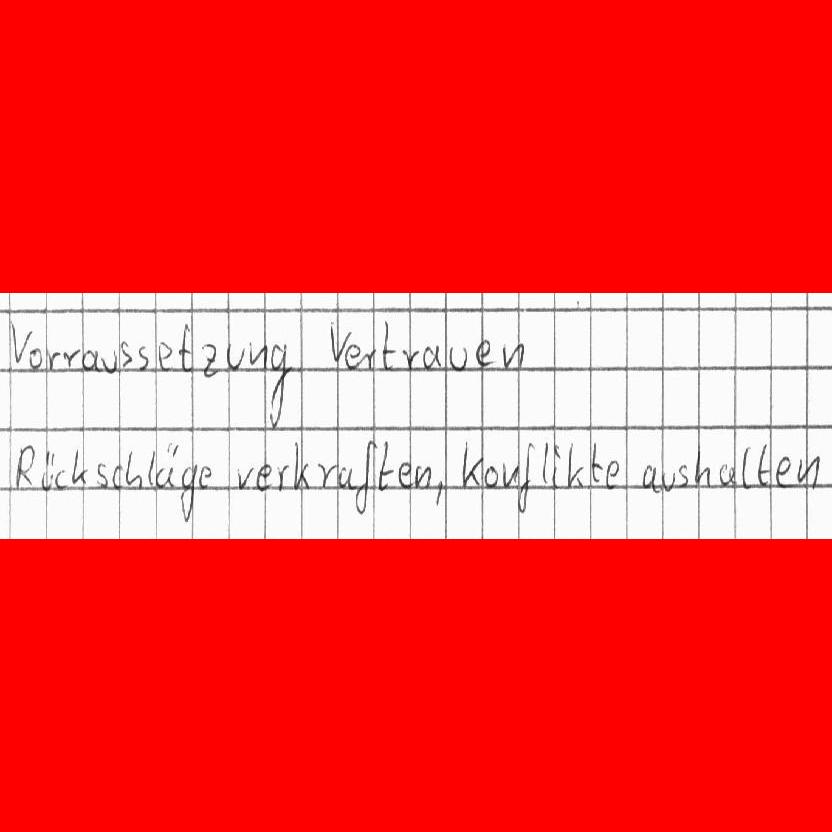 Vorraussetzung Vertrauen
Rückschläge verkraften, Konflikte aushalten